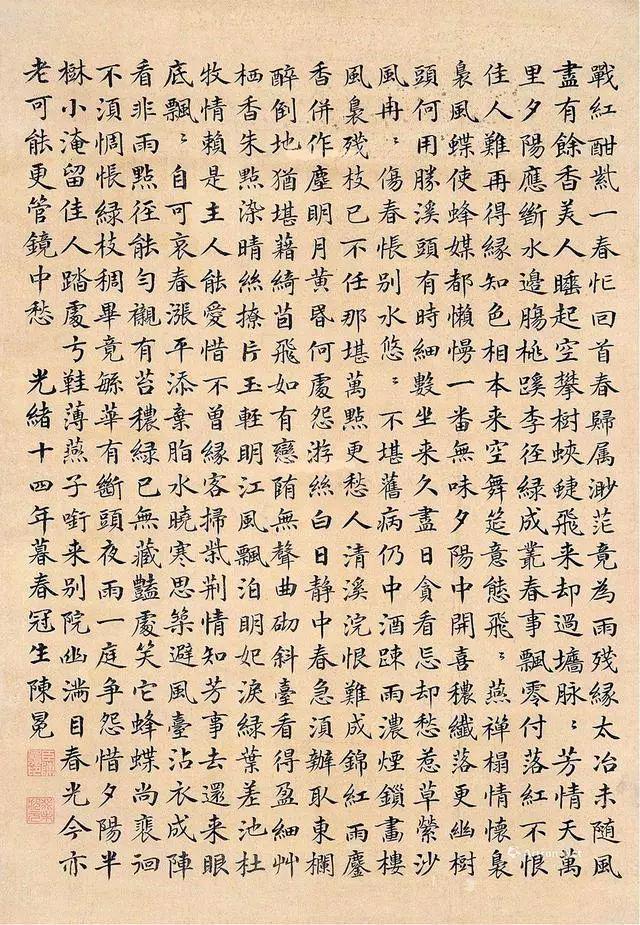 戰紅酣紫一春忙回首春歸属渺茫竟為雨殘緣太冶未隨風
盡有餘香美人睡起空攀樹蛺蜨飛来却過墻脉〻芳情天萬
里夕陽應斷水邊膓桃蹊李徑緑成叢春事飄零付落紅不恨
佳人難再得緣知色相本来空舞筵意態飛〻燕禪榻情懷裊
裊風蝶使蜂媒都懶慢一番無味夕陽中開喜穠纖落更幽樹
頭何用勝溪頭有時細數坐来久盡日貪看忘却愁惹草縈沙
風冉〻傷春悵别水悠〻不堪舊病仍中酒踈雨濃煙鎖畫樓
風裊殘枝已不任那堪萬點更愁人清溪浣恨難成錦紅雨鏖
香併作塵明月黄昏何處怨游絲白日静中春急湏辦取東欄
醉倒地猶堪藉綺茵飛如有戀陏無聲曲砌斜臺看得盈細艸
栖香朱點染晴絲撩片玉輕明江風飄泊明妃淚緑葉差池杜
牧情賴是主人能愛惜不曾緣客掃柴荆情知芳事去還来眼
底飄〻自可哀春漲平添棄脂水曉寒思築避風臺沾衣成陣
看非雨點徑能勻襯有苔穠緑已無藏豔處笑它蜂蝶尚裵徊
不湏惆悵緑枝稠畢竟緐華有斷頭夜雨一庭争怨惜夕陽半
樹小淹留佳人踏處弓鞋薄燕子啣来别院幽滿目春光今亦
老可能更管鏡中愁 光緒十四年暮春冠生陳冕